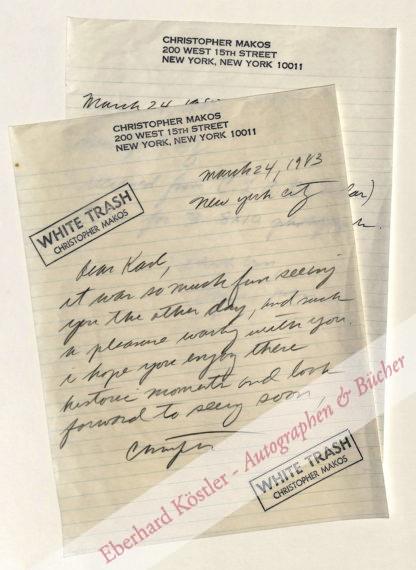 CHRISTOPHER MAKOS
200 WEST 15TH STREET
NEW YORK, NEW YORK 10011
March 24,
CHRISTOPHER MAKOS
200 WEST 15TH STREET
NEW YORK, NEW YORK 10011
march 24, 1983
New york city
WHITE TRASH
CHRISTOPHER MAKOS
Dear Karl,
it was so much fun seeing
you the other day, and such
a pleasure working with you.
i hope you enjoy there
historic moments and look
forward to seeing soon,
WHITE TRASH
CHRISTOPHER MAKOS
Eberhard Köstler - Autographen & Bücher